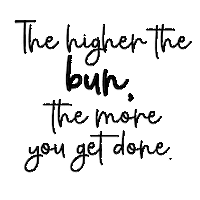 The higher the
bun,
the more
you get done.